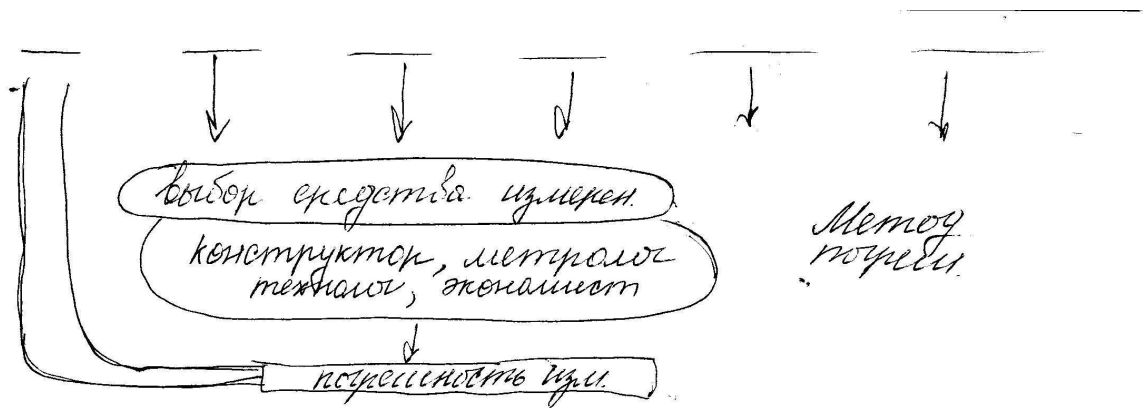 выбор средства измерен.
конструктор, метролог
технолог, экономист
Метод
погреш.
погрешность изм.